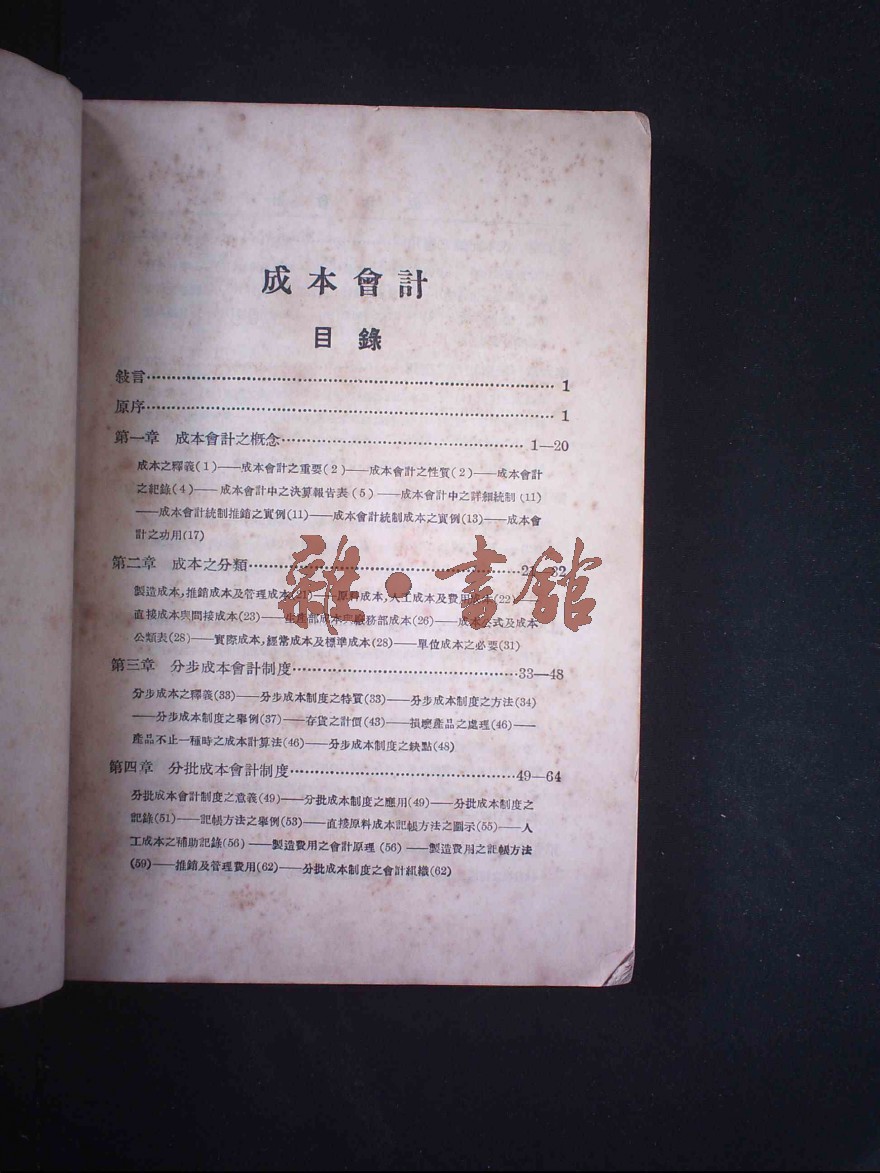 成本會計
目錄
敍言 1
原序 1
第一章 成本會計之概念 1—20
成本之釋義(1)——成本會計之重要(2)——成本會計之性質(2)——成本會計
之紀錄(4)——成本會計中之決算報告表(5)——成本會計中之詳細統制(11)
——成本會計統制推銷之實例(11)——成本會計統制成本之實例(13)——成本會
計之功用(17)
第二章 成本之分類
製造成本,推銷成本及管理成本(21)——原料成本,人工成本及費用成本(22)——
直接成本與間接成本(23)——生產部成本與廠務部成本(26)——成本公式及成本
公類表(28)——實際成本,經常成本及標準成本(28)——單位成本之必要(31)
第三章 分步成本會計制度 33—48
分步成本之釋義(33)——分步成本制度之特質(33)——分步成本制度之方法(34)
——分步成本制度之舉例(37)——存貨之計價(43)——損壞產品之處理(46)——
產品不止一種時之成本計算法(46)——分步成本制度之缺點(48)
第四章 分批成本會計制度 49—64
分批成本會計制度之意義(49)——分批成本制度之應用(49)——分批成本制度之
記錄(51)——記帳方法之舉例(53)——直接原料成本記帳方法之圖示(55)——人
工成本之補助記錄(56)——製造費用之會計原理(56)——製造費用之記帳方法
(59)——推銷及管理費用(62)——分批成本制度之會計組織(62)
雜·書舘